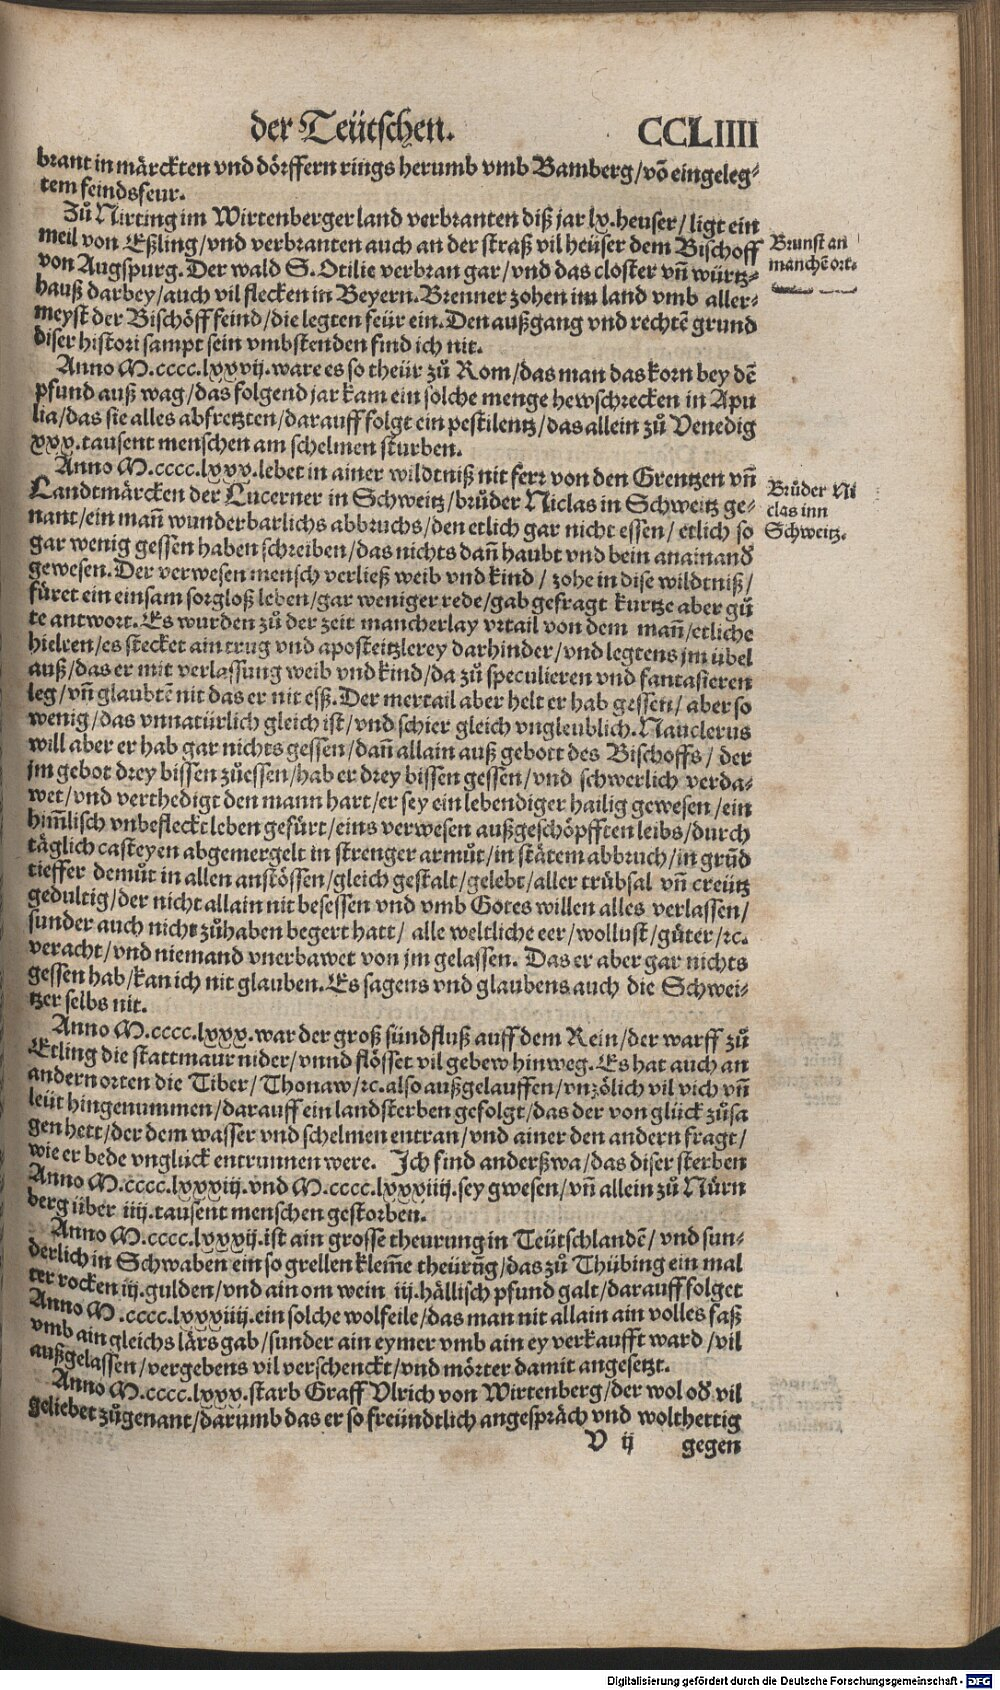 der Teütschen.
CCLIIII
brant in märckten vnd dörffern rings herumb vmb Bamberg/võ eingeleg⸗
tem feindsfeur.
Zů Nirting im Wirtenberger land verbranten diß jar lx.heuser/ligt ein
meil von Eßling/vnd verbranten auch an der straß vil heüser dem Bischoff
von Augspurg.Der wald S.Otilie verbran gar/vnd das closter vñ würtz⸗
hauß darbey/auch vil flecken in Beyern.Brenner zohen im land vmb aller⸗
meyst der Bischöff feind/die legten feür ein.Den außgang vnd rechtẽ grund
diser histori sampt sein vmbstenden find ich nit.
Brunst an
manchẽ ort⸗
Anno M.cccc.lxxvij.ware es so theür zů Rom/das man das korn bey dẽ
pfund auß wag/das folgend jar kam ein solche menge hewschrecken in Apu
lia/das sie alles abfretzten/darauff folgt ein pestilentz/das allein zů Venedig
xxx.tausent menschen am schelmen sturben.
Anno M.cccc.lxxx.lebet in ainer wildtniß nit ferr von den Grentzen vñ
Landtmärcken der Lucerner in Schweitz/brůder Niclas in Schweitz ge⸗
nant/ein mañ wunderbarlichs abbruchs/den etlich gar nicht essen/etlich so
gar wenig gessen haben schreiben/das nichts dañ haubt vnd bein anainand
gewesen.Der verwesen mensch verließ weib vnd kind/zohe in dise wildtniß/
füret ein einsam sorgloß leben/gar weniger rede/gab gefragt kurtze aber gů
te antwort.Es wurden zů der zeit mancherlay vrtail von dem mañ/etliche
hielten/es stecket ain trug vnd aposteitzlerey darhinder/vnd legtens jm übel
auß/das er mit verlassung weib vnd kind/da zů speculieren vnd fantasieren
leg/vñ glaubtẽ nit das er nit eß.Der mertail aber helt er hab gessen/aber so
wenig/das vnnatürlich gleich ist/vnd schier gleich vngleublich.Nauclerus
will aber er hab gar nichts gessen/dañ allain auß gebott des Bischoffs/der
jm gebot drey bissen zůessen/hab er drey bissen gessen/vnd schwerlich verda⸗
wet/vnd verthedigt den mann hart/er sey ein lebendiger hailig gewesen/ein
him̃lisch vnbefleckt leben gefürt/eins verwesen außgeschöpfften leibs/durch
täglich casteyen abgemergelt in strenger armůt/in stätem abbruch/in grũd
tieffer demůt in allen anstössen/gleich gestalt/gelebt/aller trübsal vñ creütz
gedultig/der nicht allain nit besessen vnd vmb Gotes willen alles verlassen/
sunder auch nicht zůhaben begert hatt/ alle weltliche eer/wollust/güter/ꝛc.
veracht/vnd niemand vnerbawet von jm gelassen. Das er aber gar nichts
gessen hab/kan ich nit glauben.Es sagens vnd glaubens auch die Schwei⸗
tzer selbs nit.
Brůder Ni
clas inn
Schweitz.
Anno M.cccc.lxxx.war der groß sündfluß auff dem Rein/der warff zů
Etling die stattmaur nider/vnnd flösset vil gebew hinweg.Es hat auch an
andern orten die Tiber/Thonaw/ꝛc.also außgelauffen/vnzölich vil vich vñ
leüt hingenummen/darauff ein landsterben gefolgt/das der von glück zůsa
gen hett/der dem wasser vnd schelmen entran/vnd ainer den andern fragt/
wie er bede vnglück entrunnen were. Ich find anderßwa/das diser sterben
Anno M.cccc.lxxxiij.vnd M.cccc.lxxxiiij.sey gwesen/vñ allein zů Nürn
berg über iiij.tausent menschen gestorben.
Anno M.cccc.lxxxij.ist ain grosse theurung in Teütschlandẽ/vnd sun⸗
derlich in Schwaben ein so grellen klem̃e theürũg/das zů Thübing ein mal
ter rocken iij.gulden/vnd ain om wein iij.hällisch pfund galt/darauff folget
Anno M.cccc.lxxxiiij.ein solche wolfeile/das man nit allain ain volles faß
vmb ain gleichs lärs gab/sunder ain eymer vmb ain ey verkaufft ward/vil
außgelassen/vergebens vil verschenckt/vnd mörter damit angesetzt.
Anno M.cccc.lxxx.starb Graff Vlrich von Wirtenberg/der wol od vil
geliebet zůgenant/darumb das er so freündtlich angespräch vnd wolthettig
V ij
gegen
Digitalisierung gefördert durch die Deutsche Forschungsgemeinschaft - DFG